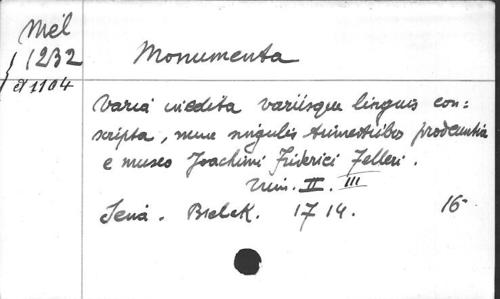 Mél
1232
et 1104
Monumenta
varia inedita variisque linguis con=
scripta, nunc singulis trimestribus prodeuntia
e museo Joachimi Friderici Felleri.
Trim. II. III
Jena. Bielek. 1714. 16-